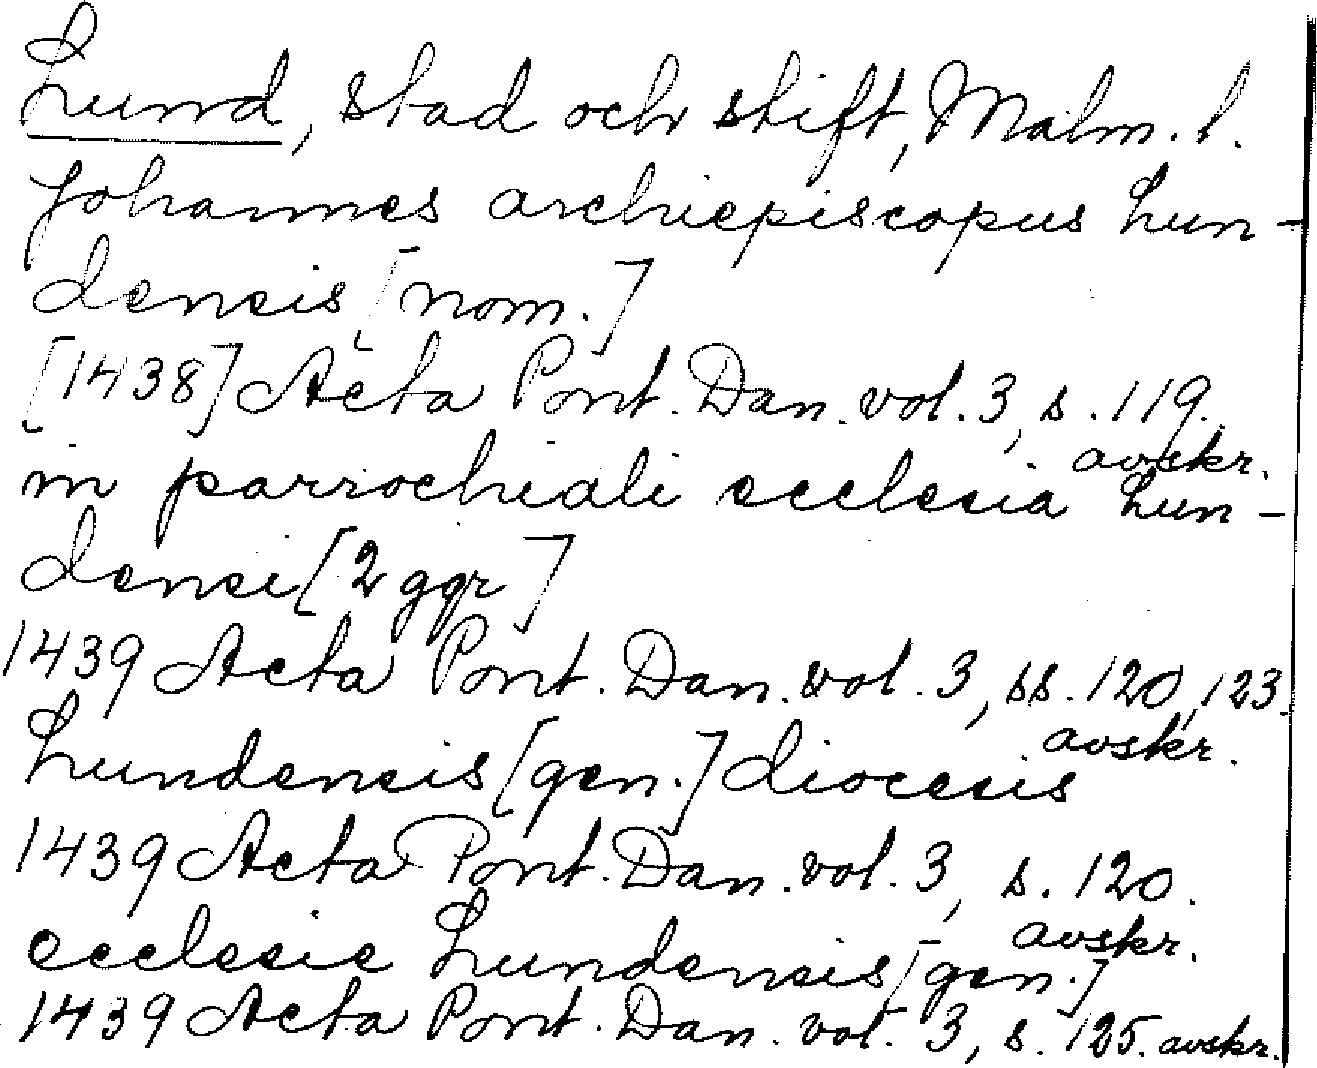 Lund, stad och stift, Malm. l.
Johannes archiepiscopus Lun-
densis [nom.]
[1438] Acta Pont. Dan. vol. 3, s. 119.
avskr.
in parrochiali ecclesia Lun-
densi [2 ggr]
1439 Acta Pont. Dan. vol. 3, ss. 120, 123.
avskr.
Lundensis [gen.] diocesis
1439 Acta Pont. Dan. vol. 3, s. 120.
avskr.
ecclesie Lundensis [gen.]
1439 Acta Pont. Dan. vol. 3, s. 125. avskr.